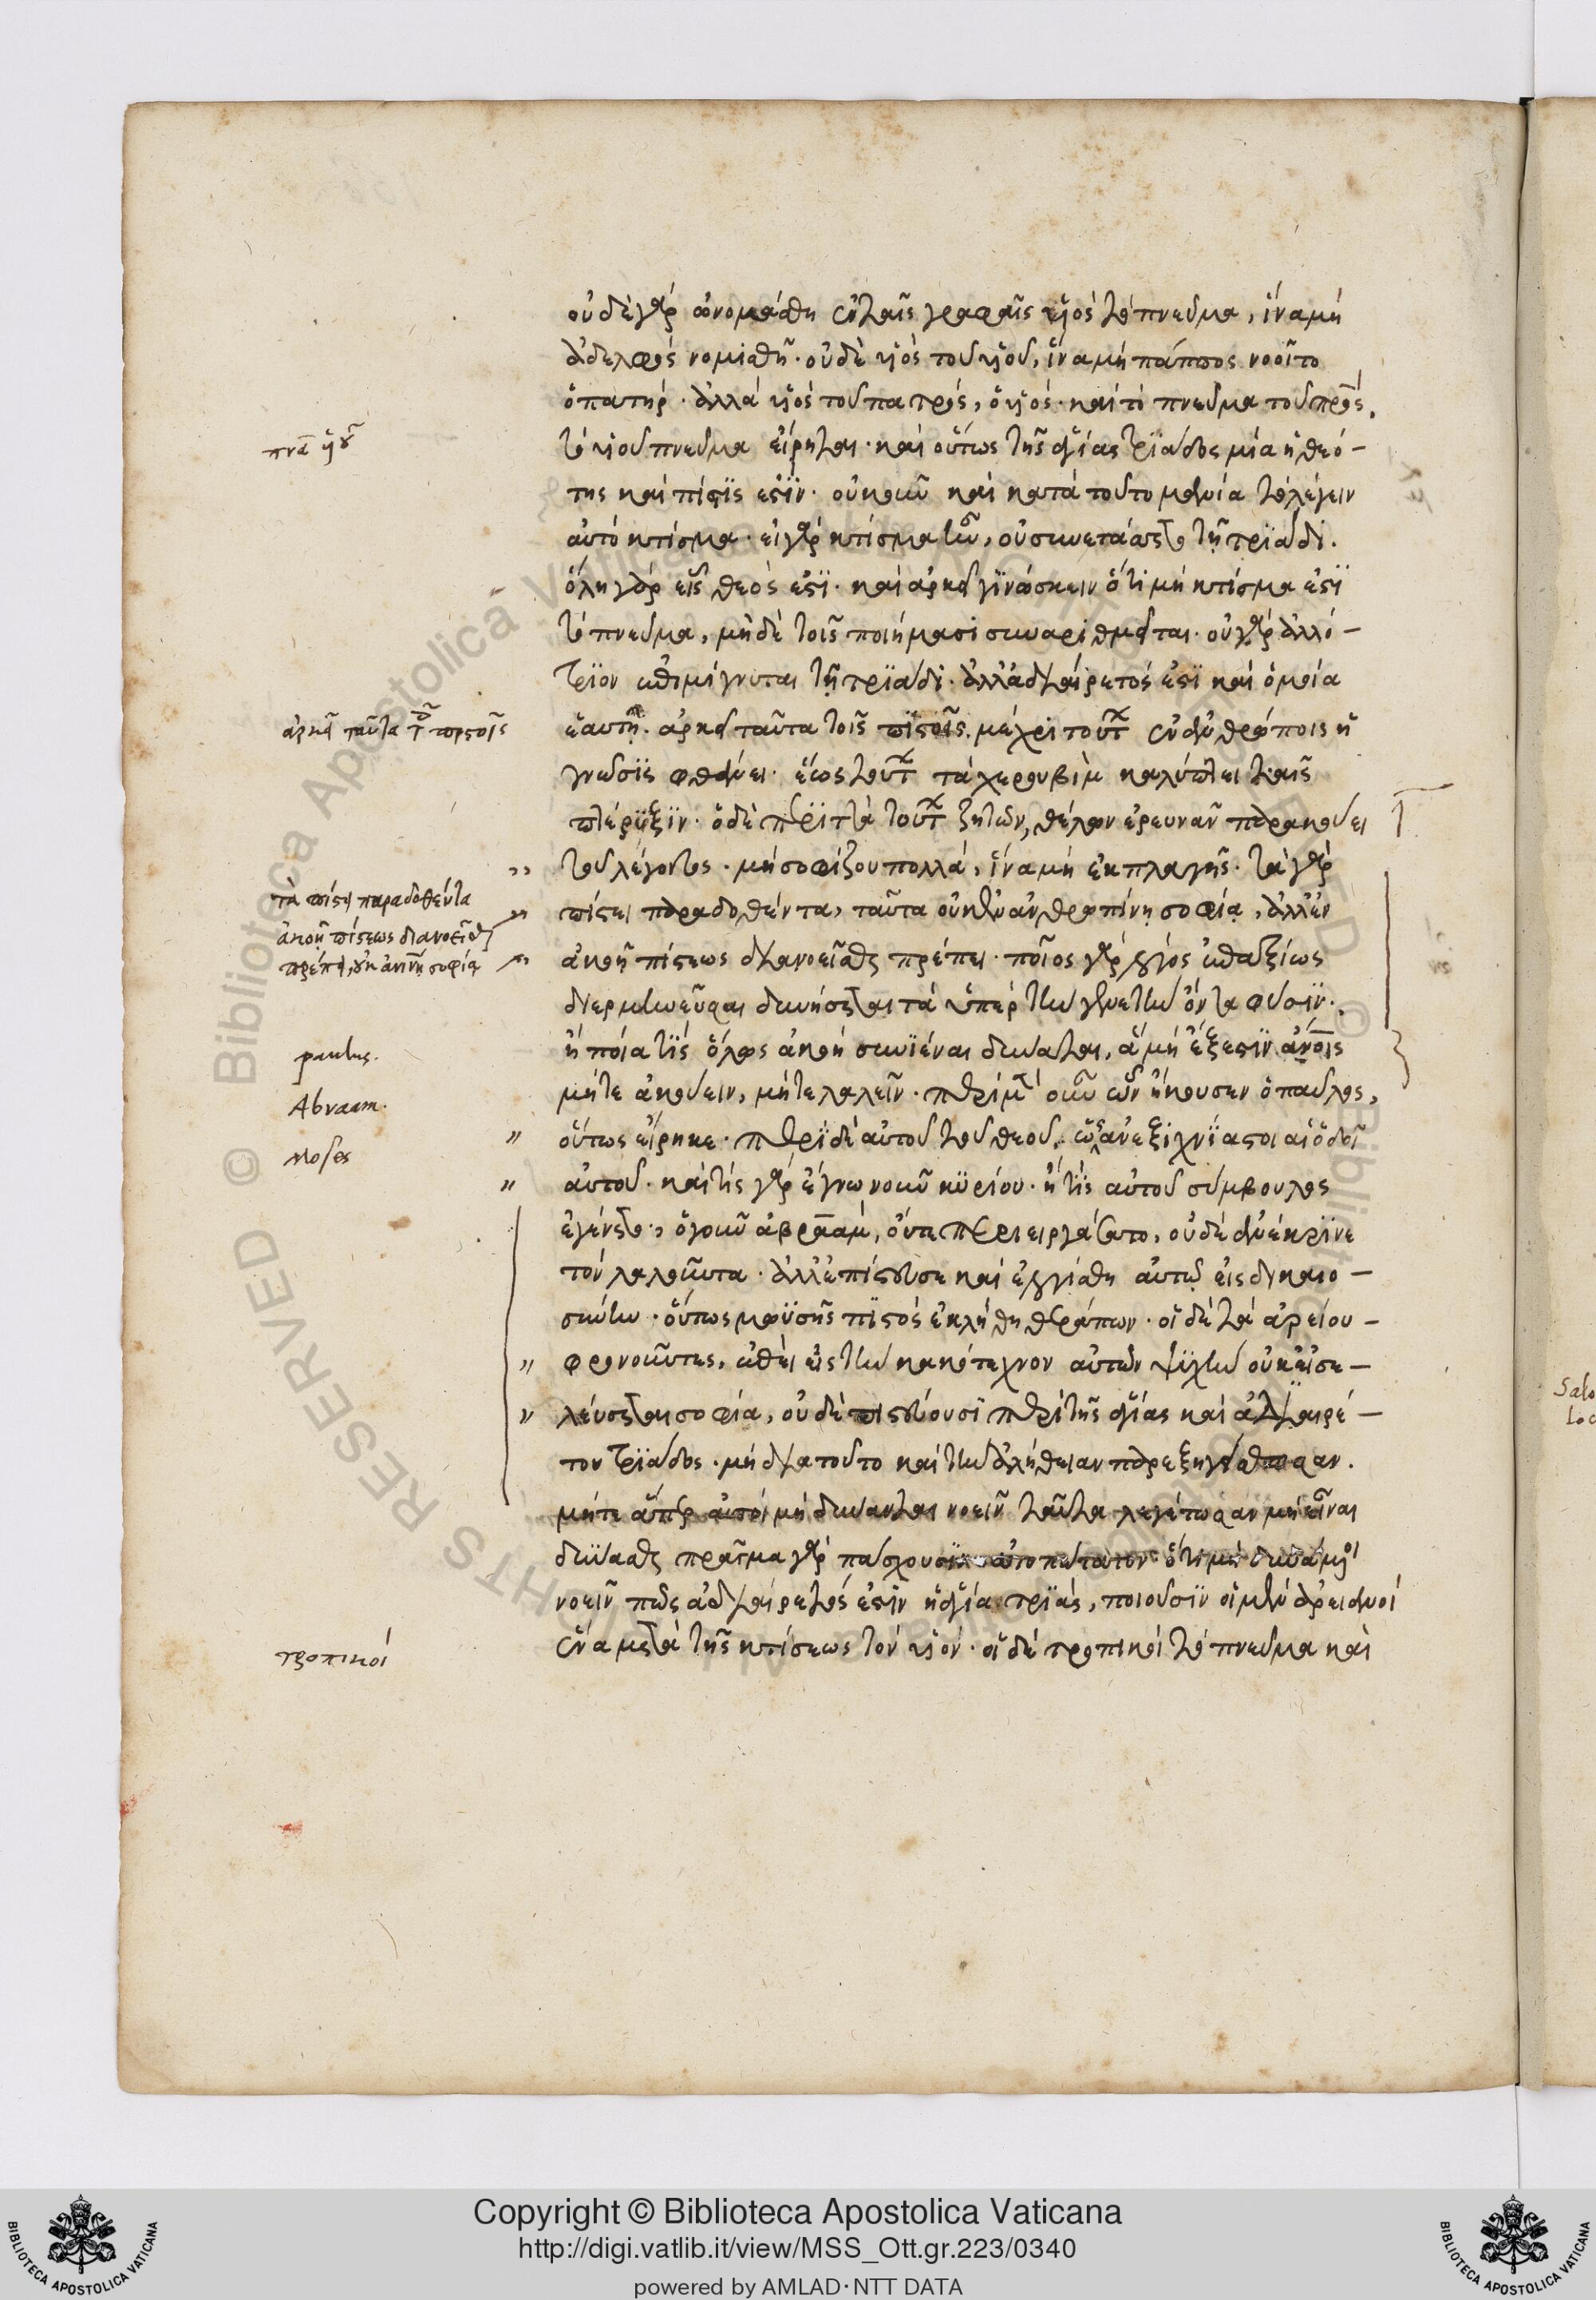 οὐδὲ γὰρ ὠνομάσθη ἐν ταῖς γραφαῖς υἱὸς τὸ πνεῦμα, ἵνα μὴ
ἀδελφὸς νομισθῇ· οὐδὲ υἱὸς τοῦ υἱοῦ, ἵνα μὴ πάππος νοοῖτο
ὁ πατήρ· ἀλλὰ υἱὸς τοῦ πατρός, ὁ υἱός· καὶ τὸ πνεῦμα τοῦ πρς,
πνα υἱοῦ
τὸ υἱοῦ πνεῦμα εἴρηται· καὶ οὕτως τῆς ἁγίας τριάδος μία ἡ θεό-
της καὶ πίστις ἐστίν· οὐκοῦν καὶ κατὰ τοῦτο μανία τὸ λέγειν
αὐτὸ κτίσμα· εἰ γὰρ κτίσμα ἦν, οὐ συνετάσσετο τῇ τριάδι.
ὅλη γὰρ εἷς θεός ἐστι· καὶ ἀρκεῖ γινώσκειν ὅτι μὴ κτίσμα ἐστὶ
τὸ πνεῦμα, μηδὲ τοῖς ποιήμασι συναριθμεῖται· οὐ γὰρ ἀλλό-
τριον ἐπιμίγνυται τῇ τριάδι· ἀλλ' ἀδιαίρετός ἐστι καὶ ὁμοία
ἀρκεῖ ταῦτα τοῖς πιστοῖς
ἑαυτῇ· ἀρκεῖ ταῦτα τοῖς πιστοῖς. μέχρι τούτ ἐν ἀνθρώποις ἡ
γνῶσις φθάνει· ἕως τούτ τὰ χερουβὶμ καλύπτει ταῖς
πτέρυξιν· ὁ δὲ περιττὰ τούτ ζητῶν, θέλων ἐρευνᾶν παρακούει
τοῦ λέγοντος· μὴ σοφίζου πολλά, ἵνα μὴ ἐκπλαγῇς· τὰ γὰρ
τὰ πίστει παραδοθέντα
πίστει παραδοθέντα, ταῦτα οὐκ ἐν ἀνθρωπίνῃ σοφίᾳ, ἀλλ' ἐν
ἀκοῇ πίστεως διανοεῖσθαι
πρέπει, οὐκ ἀνίνῃ σοφίᾳ
ἀκοῇ πίστεως διανοεῖσθαι πρέπει· ποῖος γὰρ λόγος ἐπαξίως
διερμηνεῦσαι δυνήσεται τὰ ὑπὲρ τὴν γενετὴν ὄντα φύσιν·
paulus.
ἢ ποία τις ὅλως ἀκοὴ συνιέναι δύναται, ἃ μὴ ἔξεστιν ἀνοις
Abraam.
μήτε ἀκούειν, μήτε λαλεῖν· περὶ μὲν οὖν ὧν ἤκουσεν ὁ παῦλος,
Moses
οὕτως εἴρηκε· περὶ δὲ αὐτοῦ τοῦ θεοῦ, ὡς ἀνεξιχνίαστοι αἱ ὁδοὶ
αὐτοῦ· καὶ τίς γὰρ ἔγνω νοῦν κυρίου· ἢ τίς αὐτοῦ σύμβουλος
ἐγένετο, ὁ γοῦν ἀβραάμ, οὔτε περιειργάσατο, οὐδὲ ἀνέκρινε
τὸν λαλοῦντα· ἀλλ' ἐπίστευσε καὶ ἐλογίσθη αὐτῷ εἰς δικαιο-
σύνην· οὕτως μωϋσῆς πιστὸς ἐκλήθη θεράπων· οἱ δὲ τὰ ἀρείου-
φρονοῦντες, ἐπεὶ εἰς τὴν κακότεχνον αὐτῶν ψυχὴν οὐκ εἰσε-
λεύσεται σοφία, οὐδὲ πιστεύουσι περὶ τῆς ἁγίας καὶ ἀδιαιρέ-
του τριάδος· μὴ διὰ τοῦτο καὶ τὴν ἀλήθειαν παρεξηγείσθωσαν.
μήτε ἅπερ αὐτοὶ μὴ δύνανται νοεῖν ταῦτα λεγέτωσαν μὴ εἶναι
δύνασθαι πρᾶγμα γὰρ πάσχουσιν ἀτοπώτατον ὅτι μὴ δυνάμενοι
νοεῖν πῶς ἀδιαίρετός ἐστιν ἡ ἁγία τριάς, ποιοῦσιν οἱ μὲν ἀρειανοὶ
τροπικοί
ἕνα μετὰ τῆς κτίσεως τὸν υἱόν· οἱ δὲ τροπικοὶ τὸ πνεῦμα καὶ
Copyright © Biblioteca Apostolica Vaticana
http://digi.vatlib.it/view/MSS_Ott.gr.223/0340
powered by AMLAD·NTT DATA
BIBLIOTECA APOSTOLICA VATICANA
BIBLIOTECA APOSTOLICA VATICANA